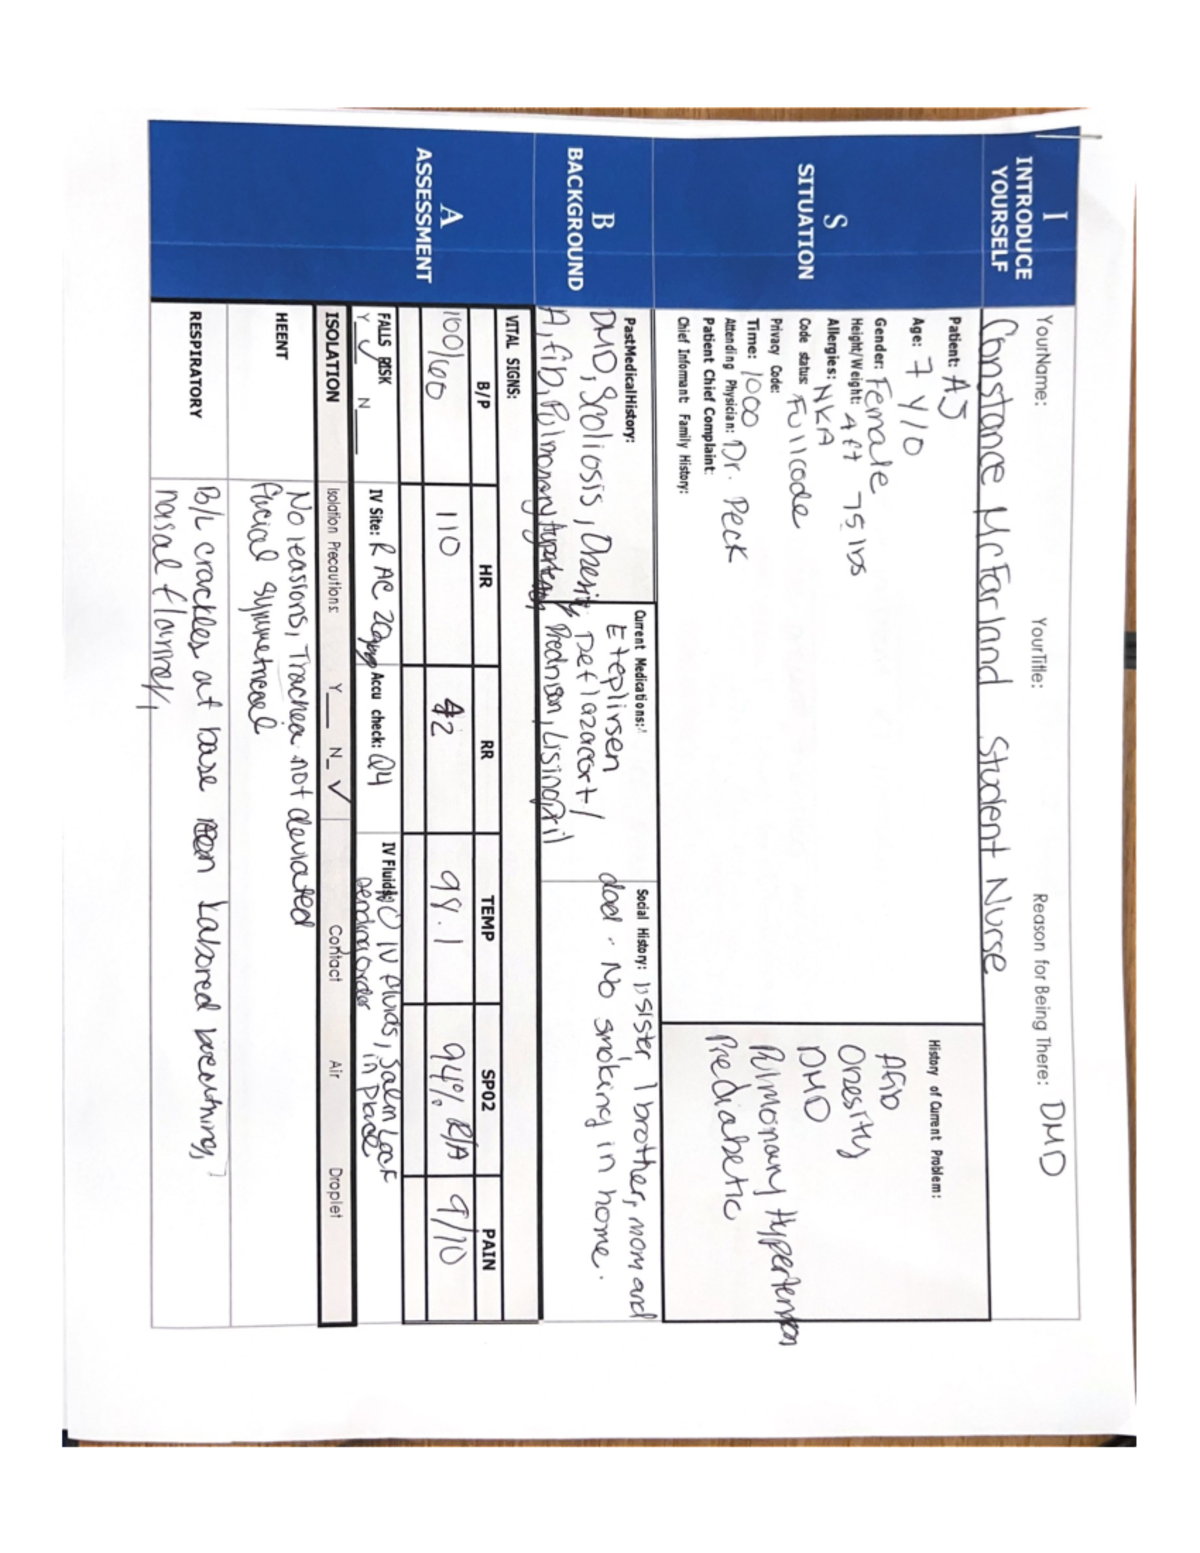 I
INTRODUCE
YOURSELF
YourName: YourTitle: Reason for Being There: DMD
Constance McFarland Student Nurse
S
SITUATION
Patient: AJ
Age: 7 y/o
Gender: Female
Height/Weight: 4ft 75 lbs
Allergies: NKA
Code status: Full code
Privacy Code:
Time: 1000
Attending Physician: Dr. Peck
Patient Chief Complaint:
Chief Informant: Family History:
History of Current Problem:
Afib
Obesity
DMD
Pulmonary Hypertension
Prediabetic
B
BACKGROUND
PastMedicalHistory:
DMD, Scoliosis, Obesity
A,fib, Pulmonary Hypertension
Current Medications:
Eteplirsen
Deflazacort/
Prednison, Lisinopril
Social History: 1 sister 1 brother, mom and
dad. No smoking in home.
A
ASSESSMENT
VITAL SIGNS:
B/P HR RR TEMP SP02 PAIN
100/60 110 42 98.1 94% R/A 9/10
FALLS RISK
Y ✓ N
IV Site: R AC 20
Accu check: Q4
IV Fluids: IV fluids, Salin Lock
pending order in place
ISOLATION Isolation Precautions: Y N ✓ Contact Air Droplet
HEENT
No leasions, Trachea not deviated
facial symmetrical
RESPIRATORY
B/L crackles at base Labored breathing,
nasal flarring,